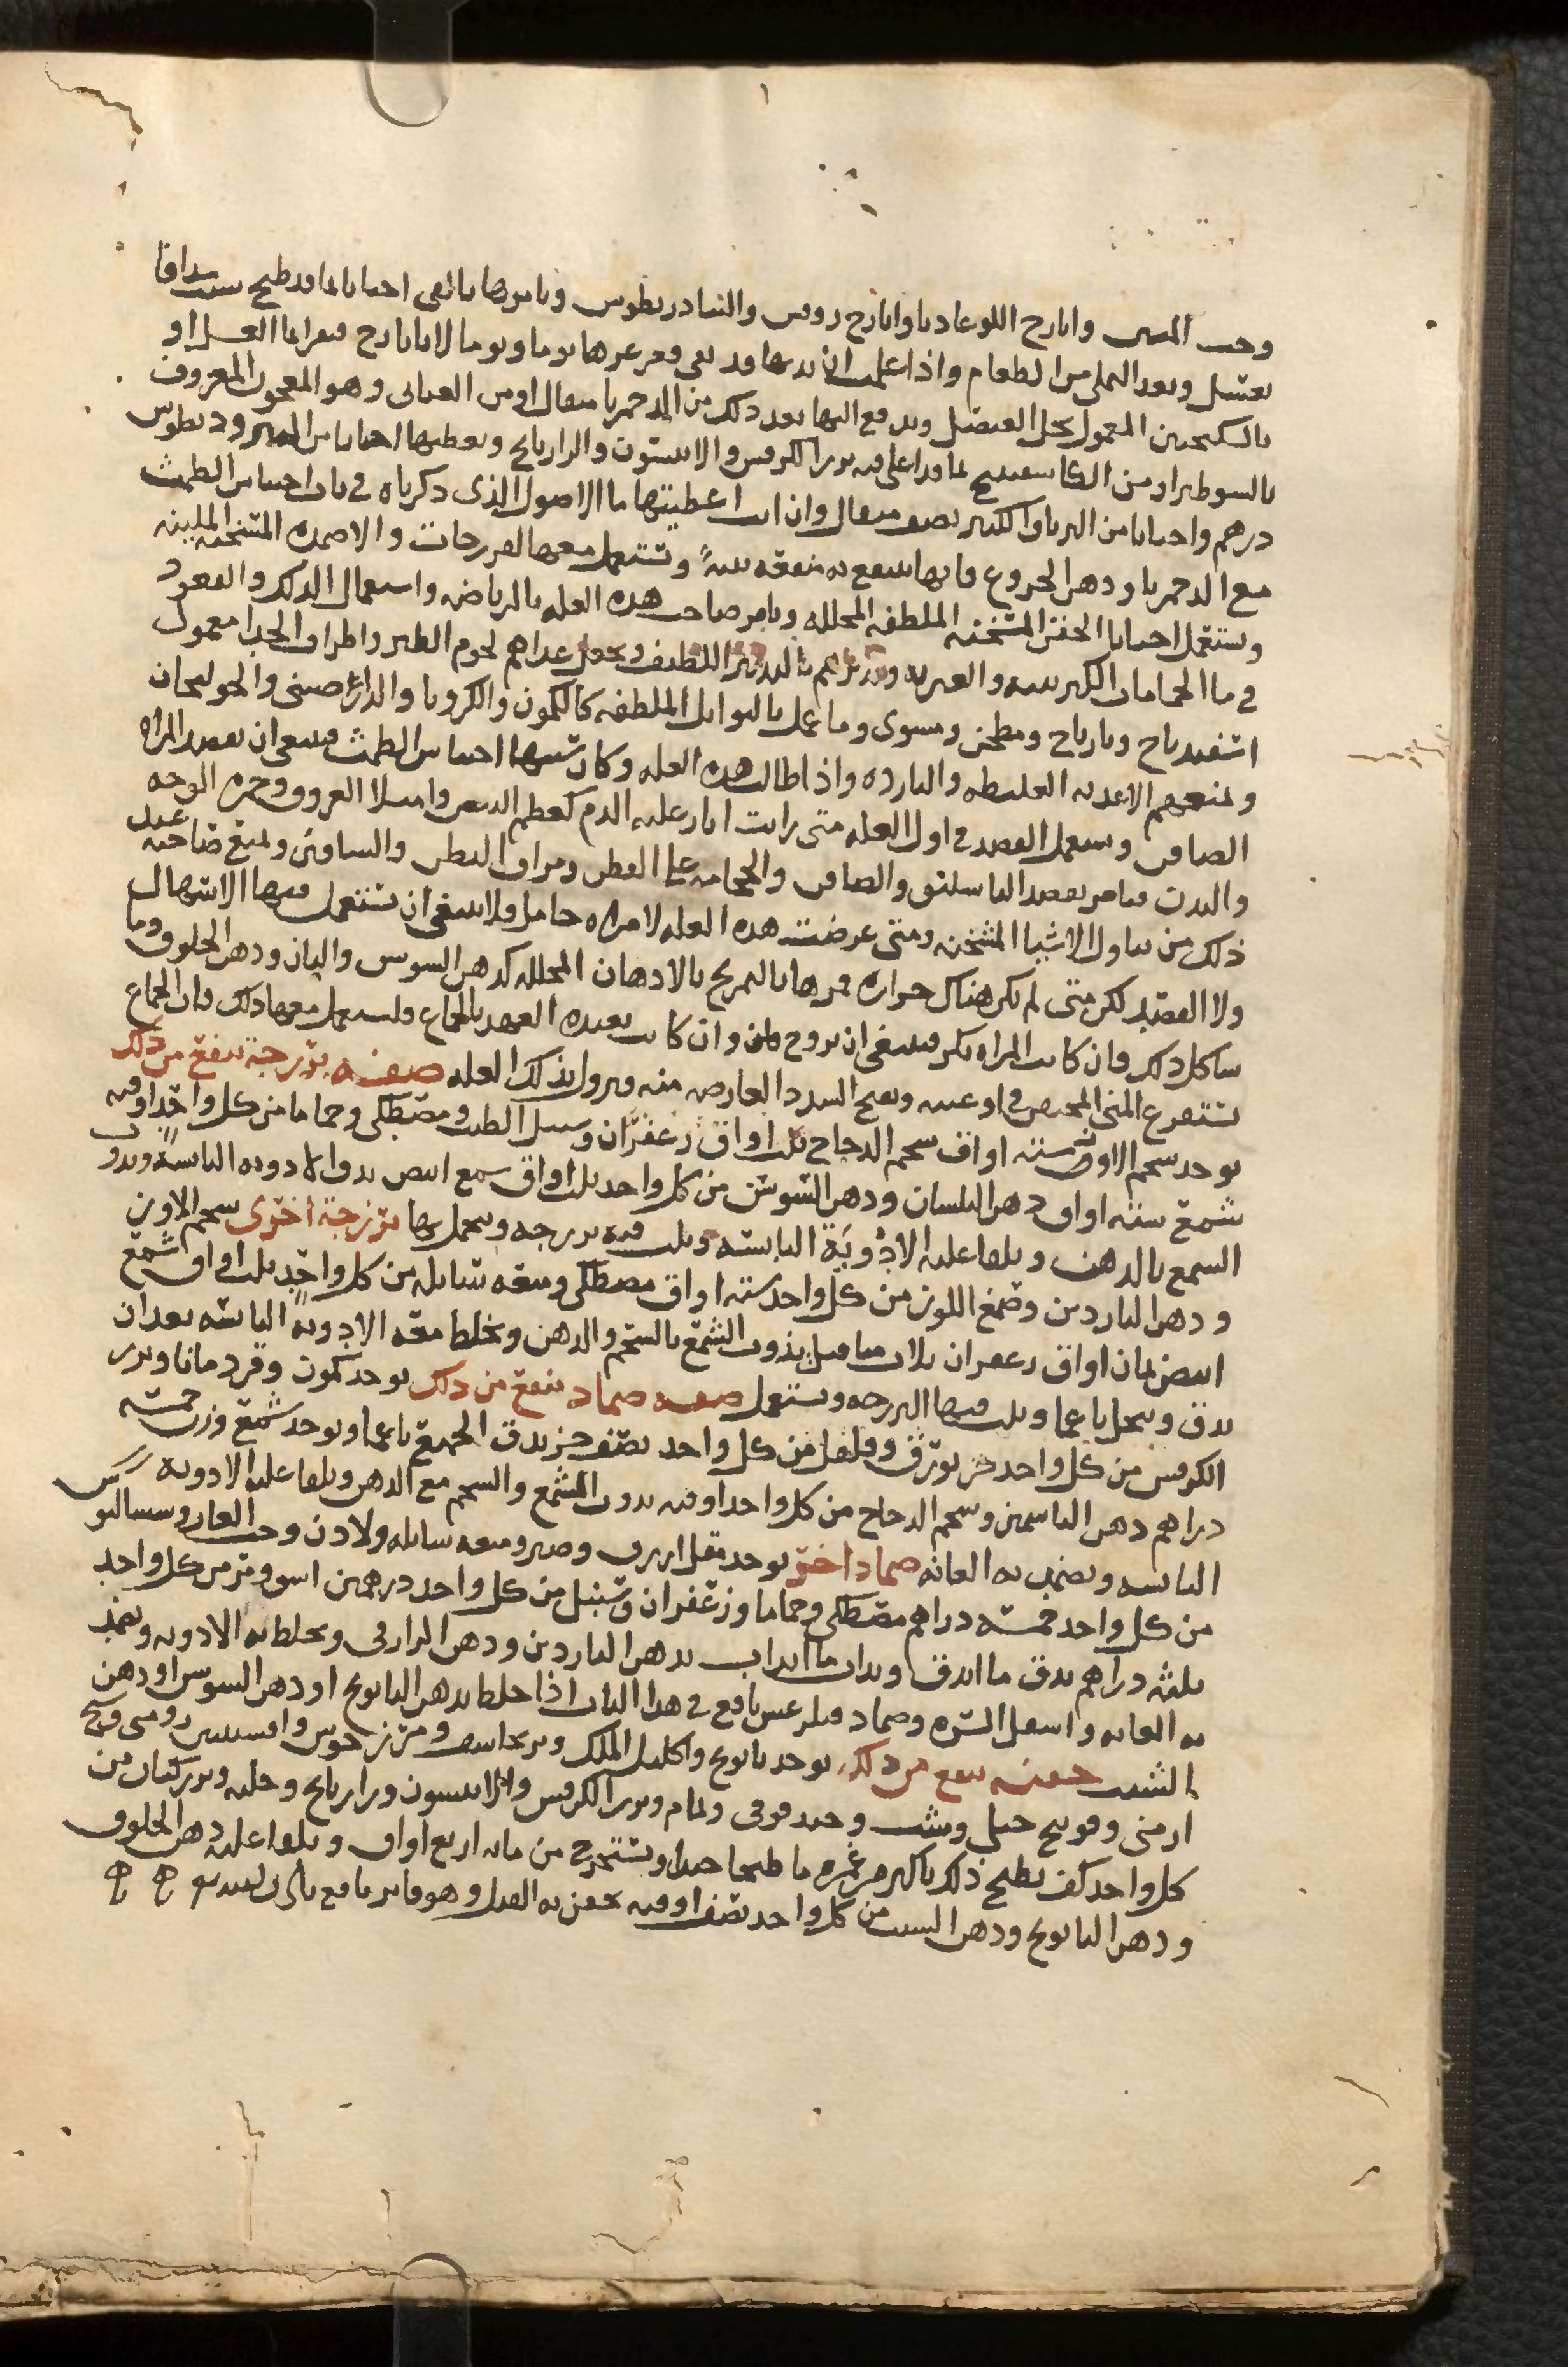 وحب المنتن وايارج اللوغاديا وايارج روفس والثيادريطوس ويامرها بالقي احيانا بما قد طبخ
بعسل وبعد التملي من الطعام واذا علمت ان بدنها قد نقي فغرغرها يوما ويوما لا بايارج فيقرا بما العسل او
بالسكنجبين المعمول بخل العنصل ويدفع اليها بعد ذلك من الدحمرثا مثقال او من وهو المعجون المعروف
بالسوطيرا ومن بما قد اغلي فيه بزر الكرفس والانيسون والرازيانج ويعطيها احيانا من المثروديطوس
درهم واحيانا من الترياق الكبير نصف مثقال وان انت اعطيتها ما الاصول الذي ذكرناه في باب احتباس الطمث
مع الدحمرثا ودهن الخروع فانها تنتفع به منفعه بينةً وتستعمل معها الفرزجات والاضمدة المسخنه الملينه
وتستعمل احيانا الحقن المسخنه الملطفه المحلله ويامر صاحب هذه العله بالرياضه واستعمال الدلك والقعود
في ما الحمامات الكبريتيه والقيريه بالتدبير اللطيف ويجعل غذاهم لحوم الطير واطراف الجدا معمول
اسفيدباج وناربباج ومطجن ومشوي وما عمل بالتوابل الملطفه كالكمون والكرويا والدارصيني والخولنجان
ويمنعهم الاغذيه الغليظه والبارده واذا طالت هذه العله وكان سببها احتباس الطمث فينبغي ان تفصد المراه
الصافن وتستعمل الفصد في اول العله متى رايت اثار غلبه الدم كعظم النبض وامتلا العروق وحمره الوجه
والبدن فتامر بفصد الباسليق والصافن والحجامه على القطن ومراق البطن والساقين وتمنع صاحبه
ذلك من تناول الاشيا المسخنه ومتى عرضت هذه العله لامراه حامل فلا ينبغي ان تستعمل فيها الاسهال
ولا الفصد لكن متى لم تكن هناك حراره فمرها بالتمريخ بالادهان المحلله كدهن السوسن والبان ودهن الخلوق وما
شاكل ذلك فان كانت المراه بكر فينبغي ان تزوج وان كانت بعيده العهد بالجماع فلتستعمل معها ذلك فان الجماع
تستفرغ المني المحتقن في اوعيته ويفتح السدد العارضه منه ويزول بذلك العله صفه فرزجة تنفع من ذلك
يوخذ شحم الاوز سته اواق شحم الدجاج ثلث اواق زعفران وسنبل الطيب ومصطكي وحماما من كل واحد اوقيه
شمع سته اواق دهن البلسان ودهن السوسن من كل واحد ثلث اواق شمع ابيض يدق الادويه اليابسة ويذوب
الشمع بالدهن ويلقا عليه الادوية اليابسه ويلت فيه فرزجه ويتحمل بها فرزجة اخرى شحم الاوز
ودهن الناردين وصمغ اللوز من كل واحد سته اواق مصطكي وميعه سائله من كل واحد ثلث اواق شمع
ابيض ثمان اواق زعفران ثلاث مثاقيل يذوب الشمع بالشحم والدهن ويخلط معه الادوية اليابسه بعد ان
يدق وينخل ناعما ويلت فيها الفرزجه وتستعمل صفه ضماد ينفع من ذلك يوخذ كمون وقردمانا وبزر
الكرفس من كل واحد جز بورق وفلفل من كل واحد نصف جز يدق الجميع ناعما ويوخذ شمع وزن خمسه
دراهم دهن الياسمين وشحم الدجاج من كل واحد اوقيه يذوب الشمع والشحم مع الدهن ويلقا عليه الادويه
اليابسه ويضمد به العانه ضماد اخر يوخذ مقل ازرق وصبر وميعه سائله ولادن وحب الغار
من كل واحد خمسه دراهم مصطكي وحماما وزعفران وسنبل من كل واحد درهمين اشق ومر من كل واحد
ثلثه دراهم يدق ما اندق ويذاب ما انذاب بدهن الناردين ودهن الرازقي ويخلط به الادويه ويضمد
به العانه واسفل السره وضماد نافع في هذا الباب اذا خلط بدهن البابونج او دهن السوسن او دهن
الشبت حقنه تنفع من ذلك يوخذ بابونج واكليل الملك وبرنجاسف ومرزنجوش وافسنتين رومي
ارمني وفوتنج جبلي وشب وحندقوقي ونمام وبزر الكرفس والانيسون ورازيانج وحلبه وبزر كتان من
كل واحد كف يطبخ ذلك باكثر من غمره ما طبخا جيدا ويستخرج من مائه اربع اواق ويلقا عليه دهن الخلوق
ودهن البابونج ودهن الشبت من كل واحد نصف اوقيه تحقن به القبل وهو